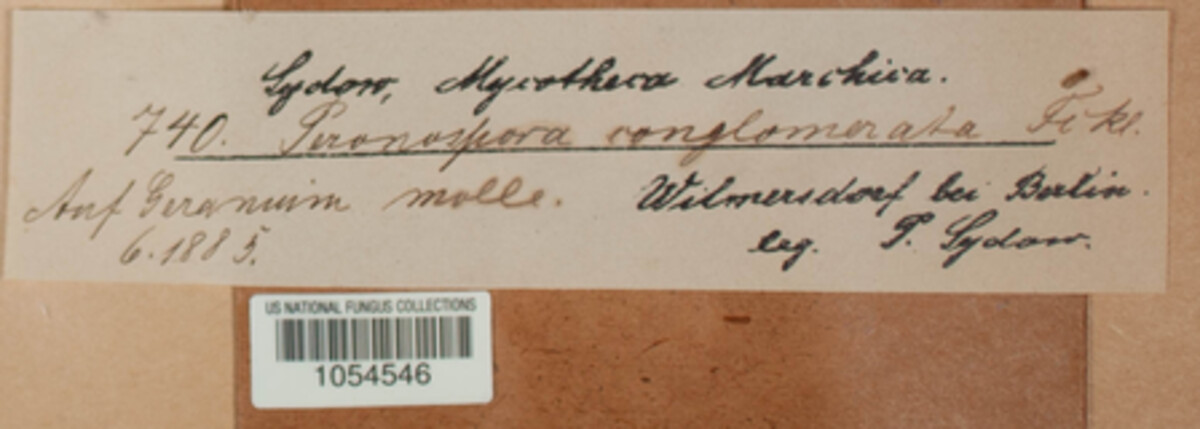 Sydow, Mycotheca Marchica.
740. Peronospora conglomerata Fckl.
Auf Geranium molle. Wilmersdorf bei Berlin.
6.1885. leg. P. Sydow.
US NATIONAL FUNGUS COLLECTIONS
1054546